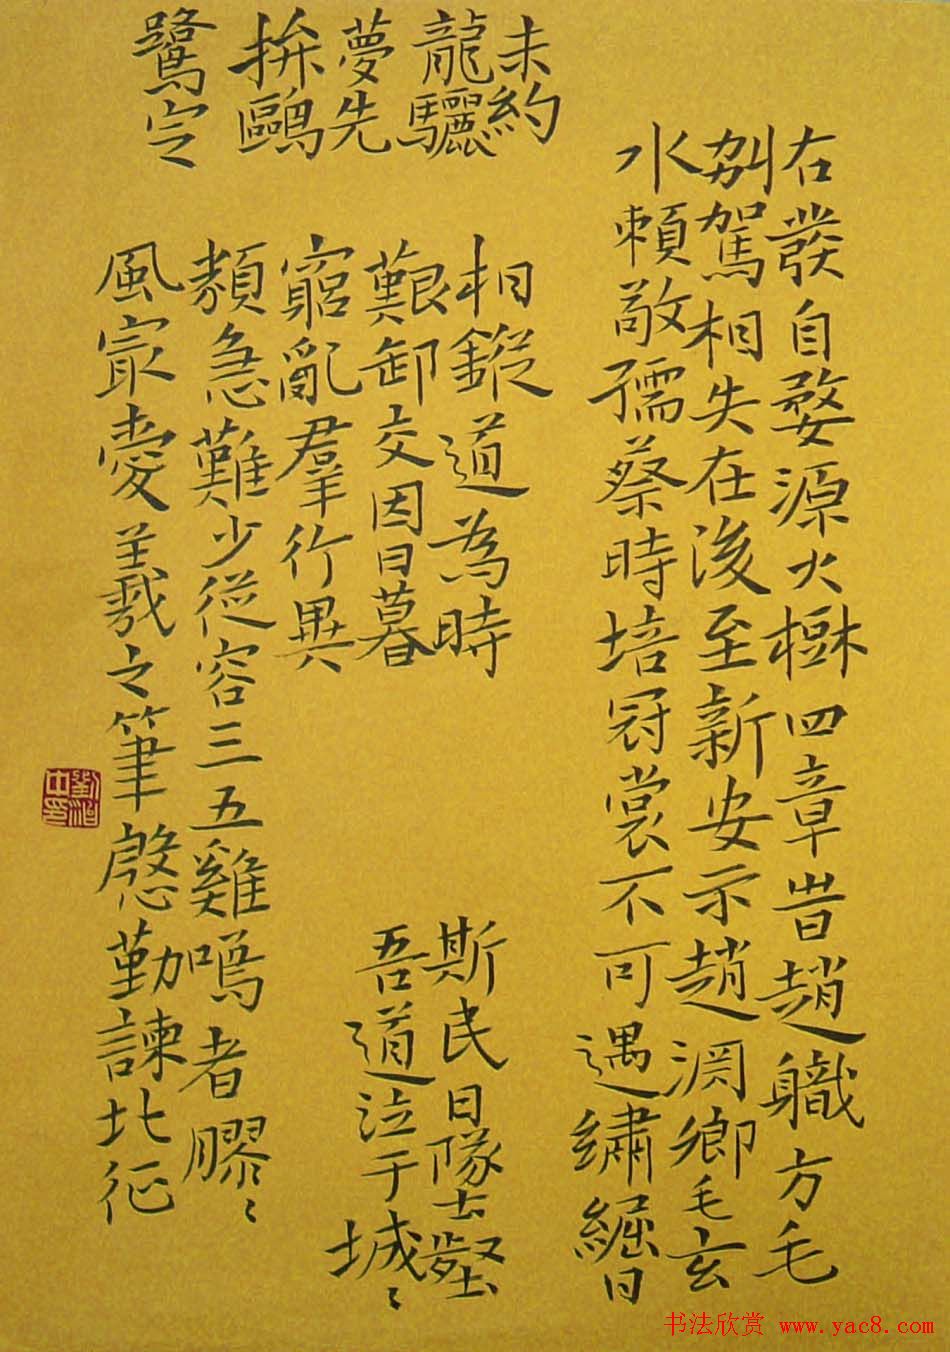 右發自婺源火樹四章昔趙職方毛
別駕相失在後至新安示趙澗鄉毛玄
水賴敬孺蔡時培冠裳不可遇繡日
未約
龍驪
夢先
拚鷗
鷺定
相鏦道為時
艱卸交因日暮
窮亂羣行異
類急難少從容三五雞鳴者膠〻
風冣愛羲之筆慇勤諫北征
斯民日隊壑
吾道泣于城〻
书法欣赏 www.yac8.com